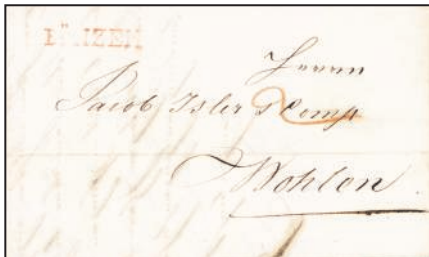 BÜNZEN
Herrn
Jacob Isler & Comp
Wohlen